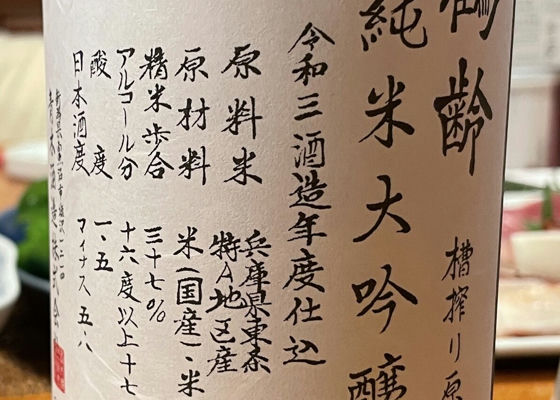 鶴齢
槽搾り原
純米大吟醸
令和三酒造年度仕込
原料米 兵庫県東条
特A地区産
原材料 米(国産)、米
精米歩合 三十七%
アルコール分 十六度以上十七
酸度 一、五
日本酒度 マイナス 五八
青木酒造株式会